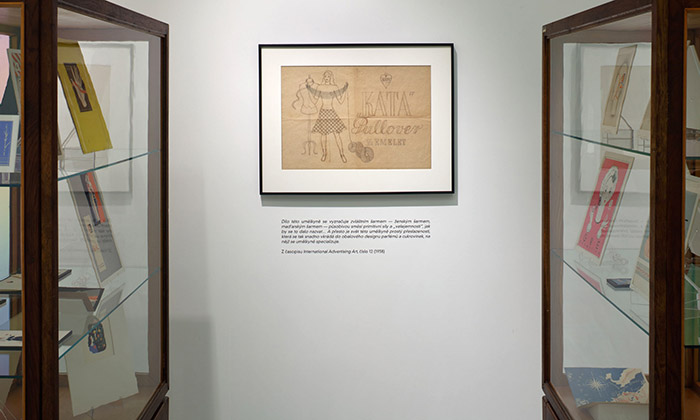 "KATA"
Pullover
Dílo této umělkyně se vyznačuje zvláštním šarmem — ženským šarmem,
maďarským šarmem — působivou směsí primitivní síly a
by se to dalo nazvat... A přesto je svět této umělkyně prostý přeslazenosti,
která se tak snadno vkrádá do obalového designu parfémů a cukrovinek, na
něž se umělkyně specializuje.
Z časopisu International Advertising Art, číslo 12 (1938)